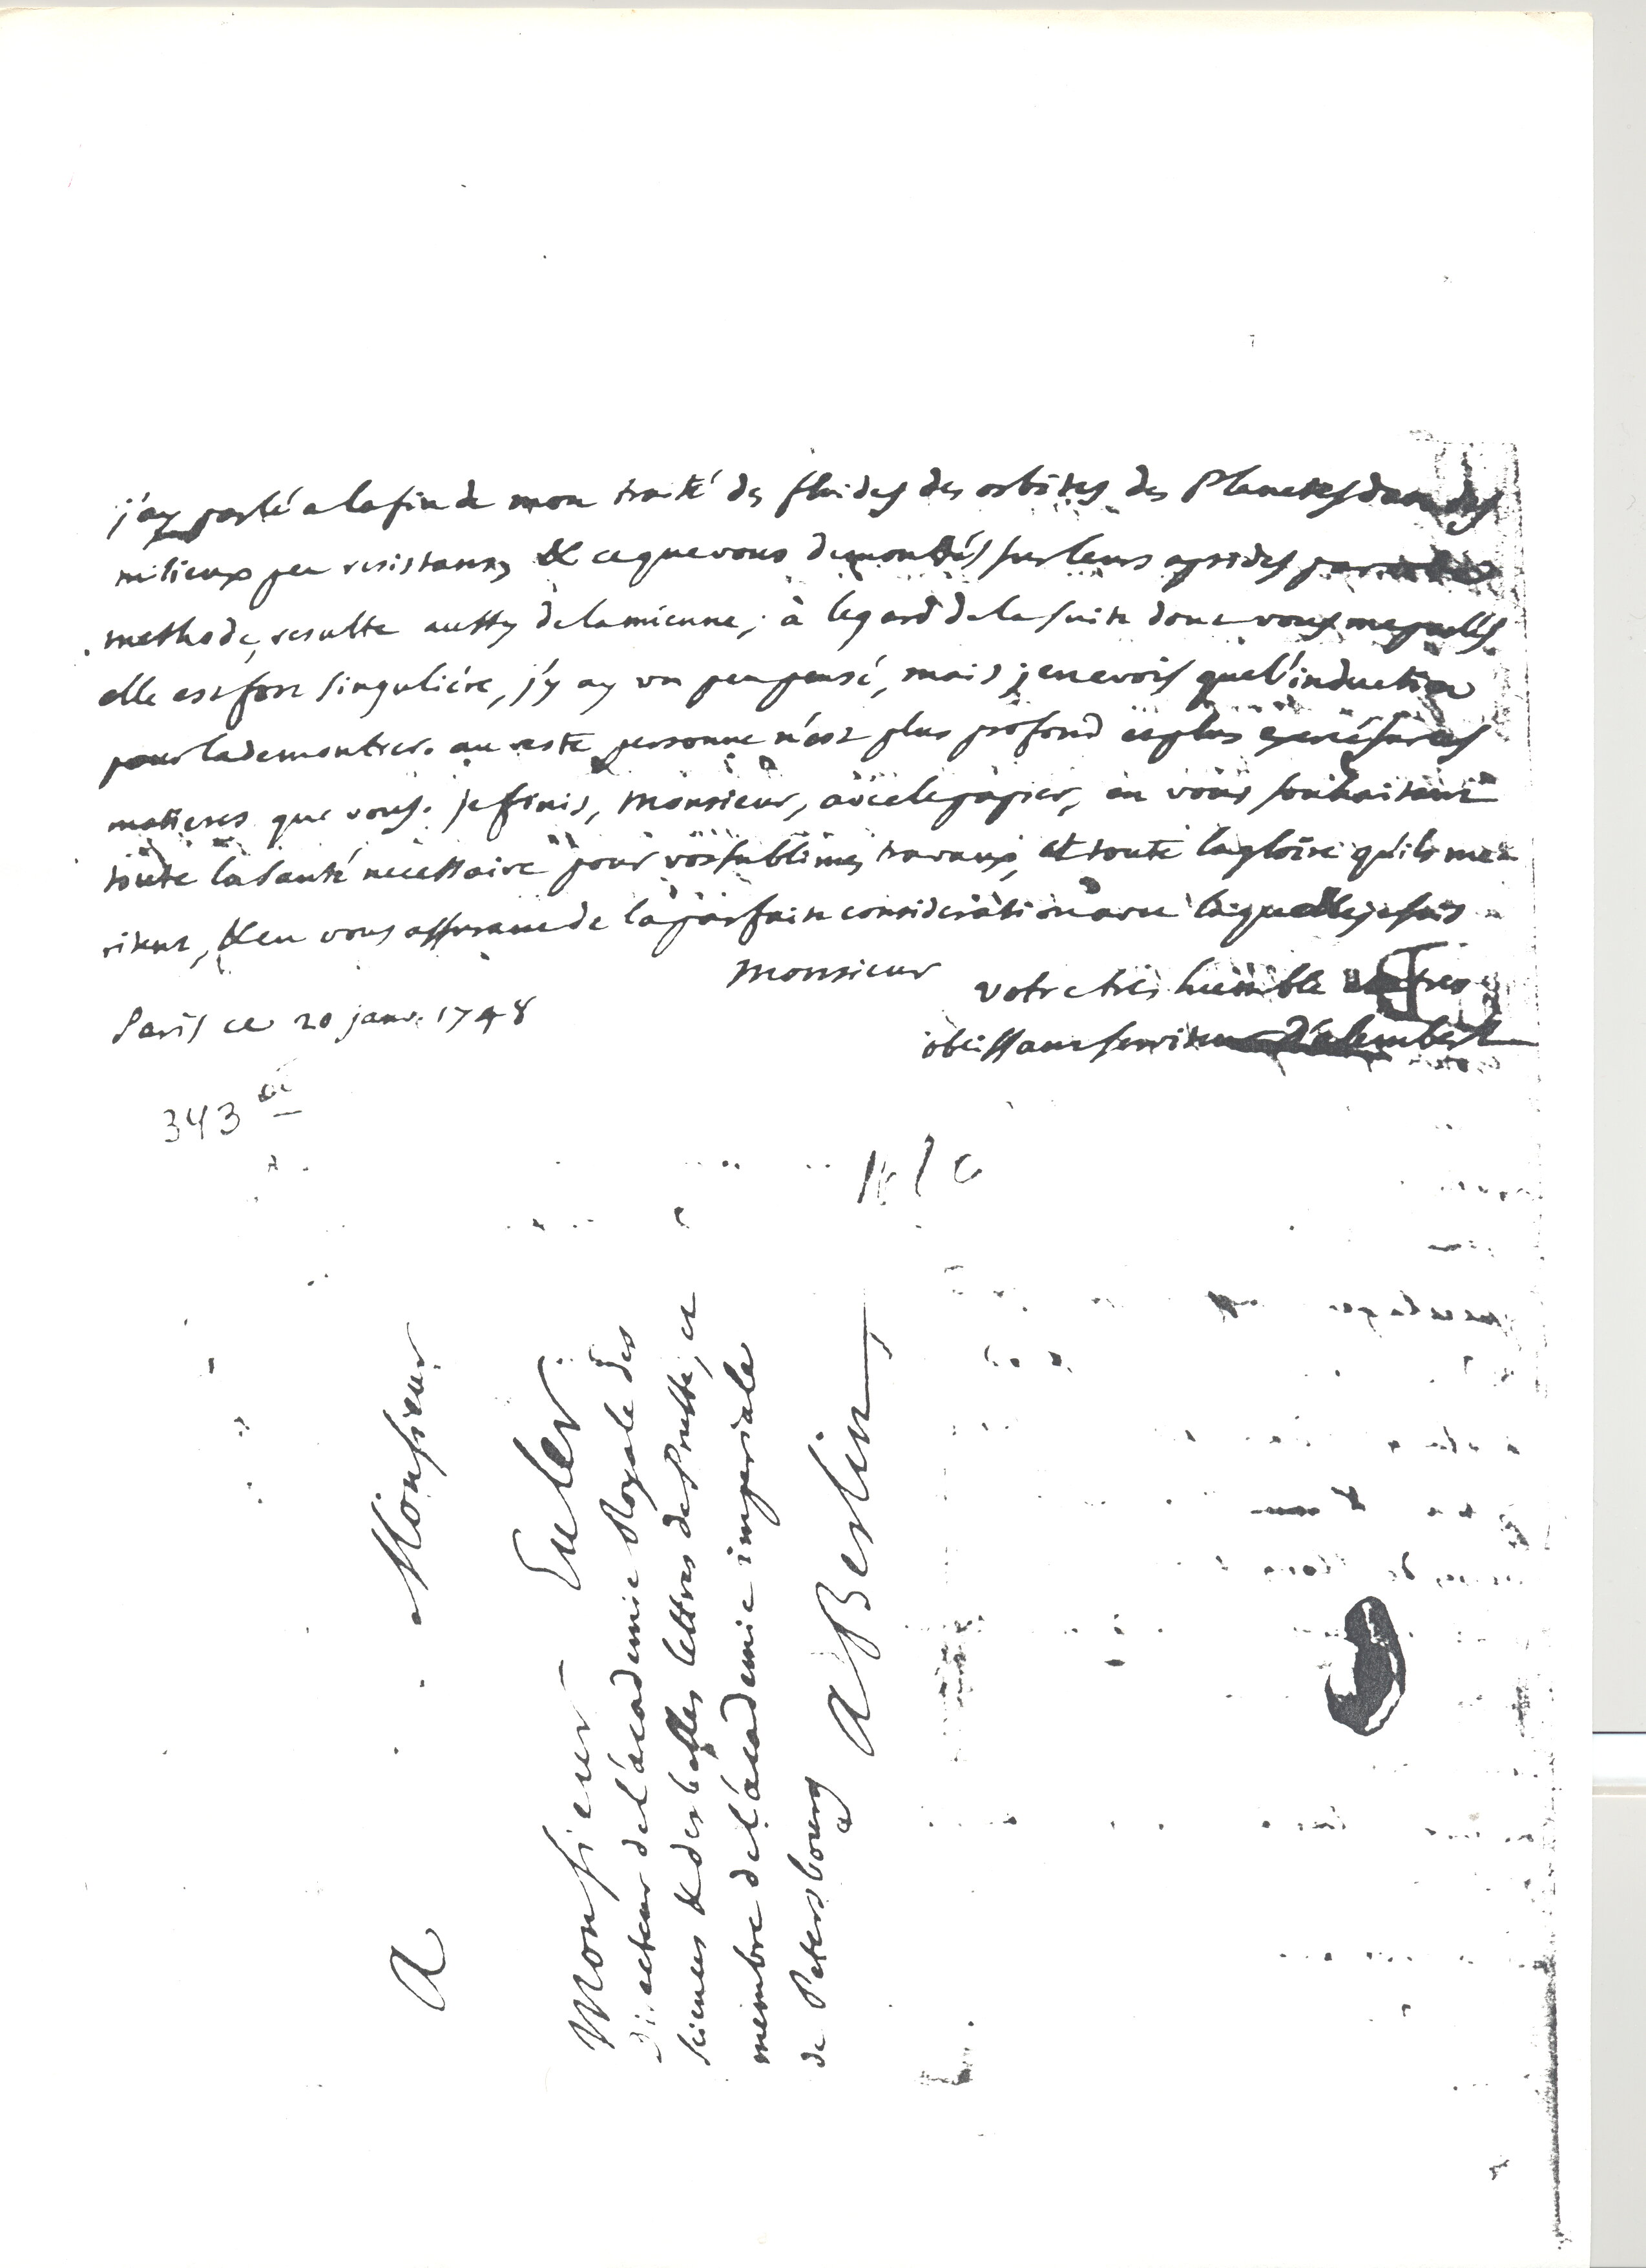 j'ay parlé a la fin de mon traité des fluides des orbites des Planetes dans des
milieux peu resistans, & ce que vous demontrés sur leurs apsides par
methode, resulte aussy de la mienne; à legard de la suite dont vous me parlés
elle est fort singuliére, j'y ay un peu pensé, mais je ne vois que l'induction
pour la demontrer. au reste personne n'est plus profond et plus exercé sur ces
matieres que vous. je finis, Monsieur, avec le papier, en vous souhaitant
toute la santé necessaire pour vos sublimes travaux, et toute la gloire qu'ils me-
ritent, & en vous assurant de la parfaite consideration avec laquelle je suis
Monsieur
votre tres humble et tres
obeissant serviteur D'alembert
Paris ce 20 janv. 1748
343
A Monsieur
Monsieur Euler
Directeur de l'academie Royale des
sciences & des belles lettres de Prusse, et
membre de l'academie imperiale
de Petersbourg
A Berlin